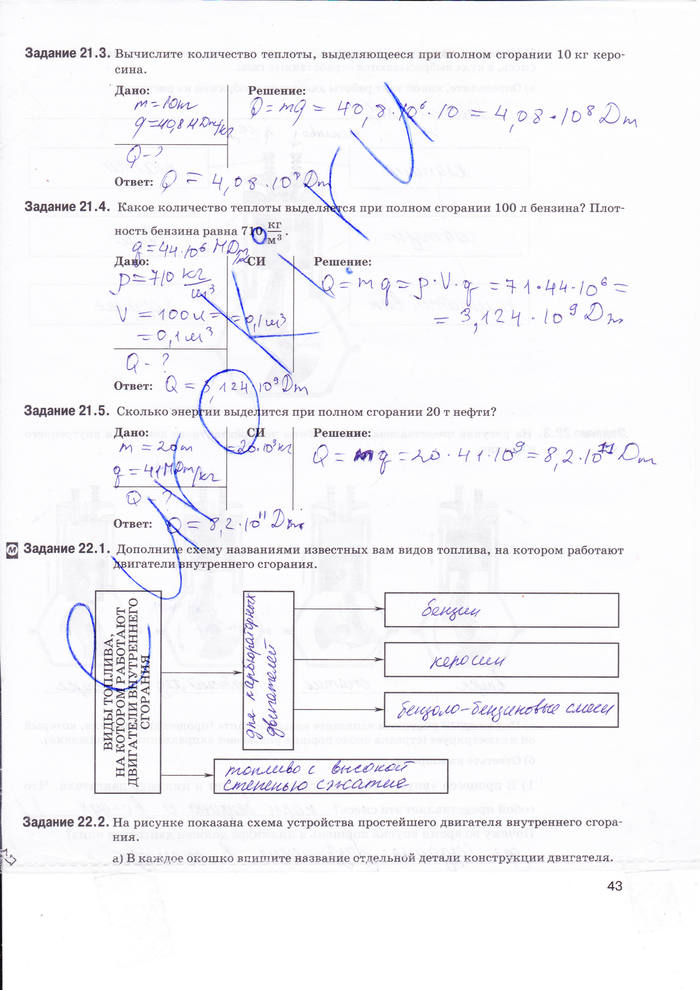 Задание 21.3. Вычислите количество теплоты, выделяющееся при полном сгорании 10 кг керо-
сина.
Дано: Решение:
m = 10кг Q = mq = 40,8·10⁶·10 = 4,08·10⁸ Дж
q = 40,8 МДж/кг
Q - ?
Ответ: Q = 4,08·10⁸ Дж
Задание 21.4. Какое количество теплоты выделяется при полном сгорании 100 л бензина? Плот-
ность бензина равна 710 кг/м³.
q = 44·10⁶ МДж/кг
Дано: СИ Решение:
ρ = 710 кг/м³ Q = mq = ρ·V·q = 71·44·10⁶ =
V = 100л = = 0,1м³ = 3,124·10⁹ Дж
= 0,1м³
Q - ?
Ответ: Q = 3,124·10⁹ Дж
Задание 21.5. Сколько энергии выделится при полном сгорании 20 т нефти?
Дано: СИ Решение:
m = 20т = 20·10³кг Q = mq = 20·41·10⁹ = 8,2·10¹¹ Дж
q = 41МДж/кг
Q - ?
Ответ: Q = 8,2·10¹¹ Дж
М Задание 22.1. Дополните схему названиями известных вам видов топлива, на котором работают
двигатели внутреннего сгорания.
ВИДЫ ТОПЛИВА,
НА КОТОРОМ РАБОТАЮТ
ДВИГАТЕЛИ ВНУТРЕННЕГО
СГОРАНИЯ
для карбюраторных
двигателей
бензин
керосин
бензоло-бензиновые смеси
топливо с высокой
степенью сжатие
Задание 22.2. На рисунке показана схема устройства простейшего двигателя внутреннего сгора-
ния.
а) В каждое окошко впишите название отдельной детали конструкции двигателя.
43